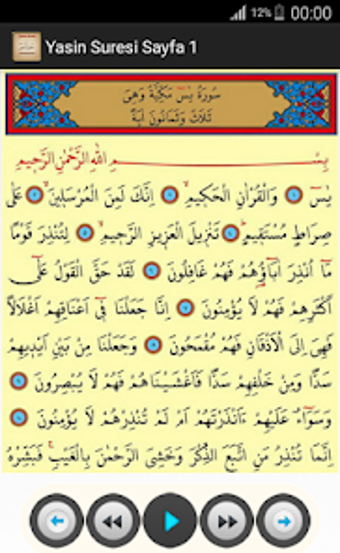 12% 00:00
Yasin Suresi Sayfa 1
سُورَةُ يٰسٓ مَكِّيَّةٌ وَهِيَ
ثَلَاثٌ وَثَمَانُونَ اٰيَةً
بِسْمِ اللّٰهِ الرَّحْمٰنِ الرَّحِيمِ
يٰسٓ وَالْقُرْاٰنِ الْحَكِيمِ اِنَّكَ لَمِنَ الْمُرْسَلِينَ عَلٰى
صِرَاطٍ مُسْتَقِيمٍ تَنْزِيلَ الْعَزِيزِ الرَّحِيمِ لِتُنْذِرَ قَوْمًا
مَٓا اُنْذِرَ اٰبَٓاؤُ۬هُمْ فَهُمْ غَافِلُونَ لَقَدْ حَقَّ الْقَوْلُ عَلٰٓى
اَكْثَرِهِمْ فَهُمْ لَا يُؤْمِنُونَ اِنَّا جَعَلْنَا فِٓي اَعْنَاقِهِمْ اَغْلَالًا
فَهِيَ اِلَى الْاَذْقَانِ فَهُمْ مُقْمَحُونَ وَجَعَلْنَا مِنْ بَيْنِ اَيْدِيهِمْ
سَدًّا وَمِنْ خَلْفِهِمْ سَدًّا فَاَغْشَيْنَاهُمْ فَهُمْ لَا يُبْصِرُونَ
وَسَوَٓاءٌ عَلَيْهِمْ ءَاَنْذَرْتَهُمْ اَمْ لَمْ تُنْذِرْهُمْ لَا يُؤْمِنُونَ
اِنَّمَا تُنْذِرُ مَنِ اتَّبَعَ الذِّكْرَ وَخَشِيَ الرَّحْمٰنَ بِالْغَيْبِ فَبَشِّرْهُ